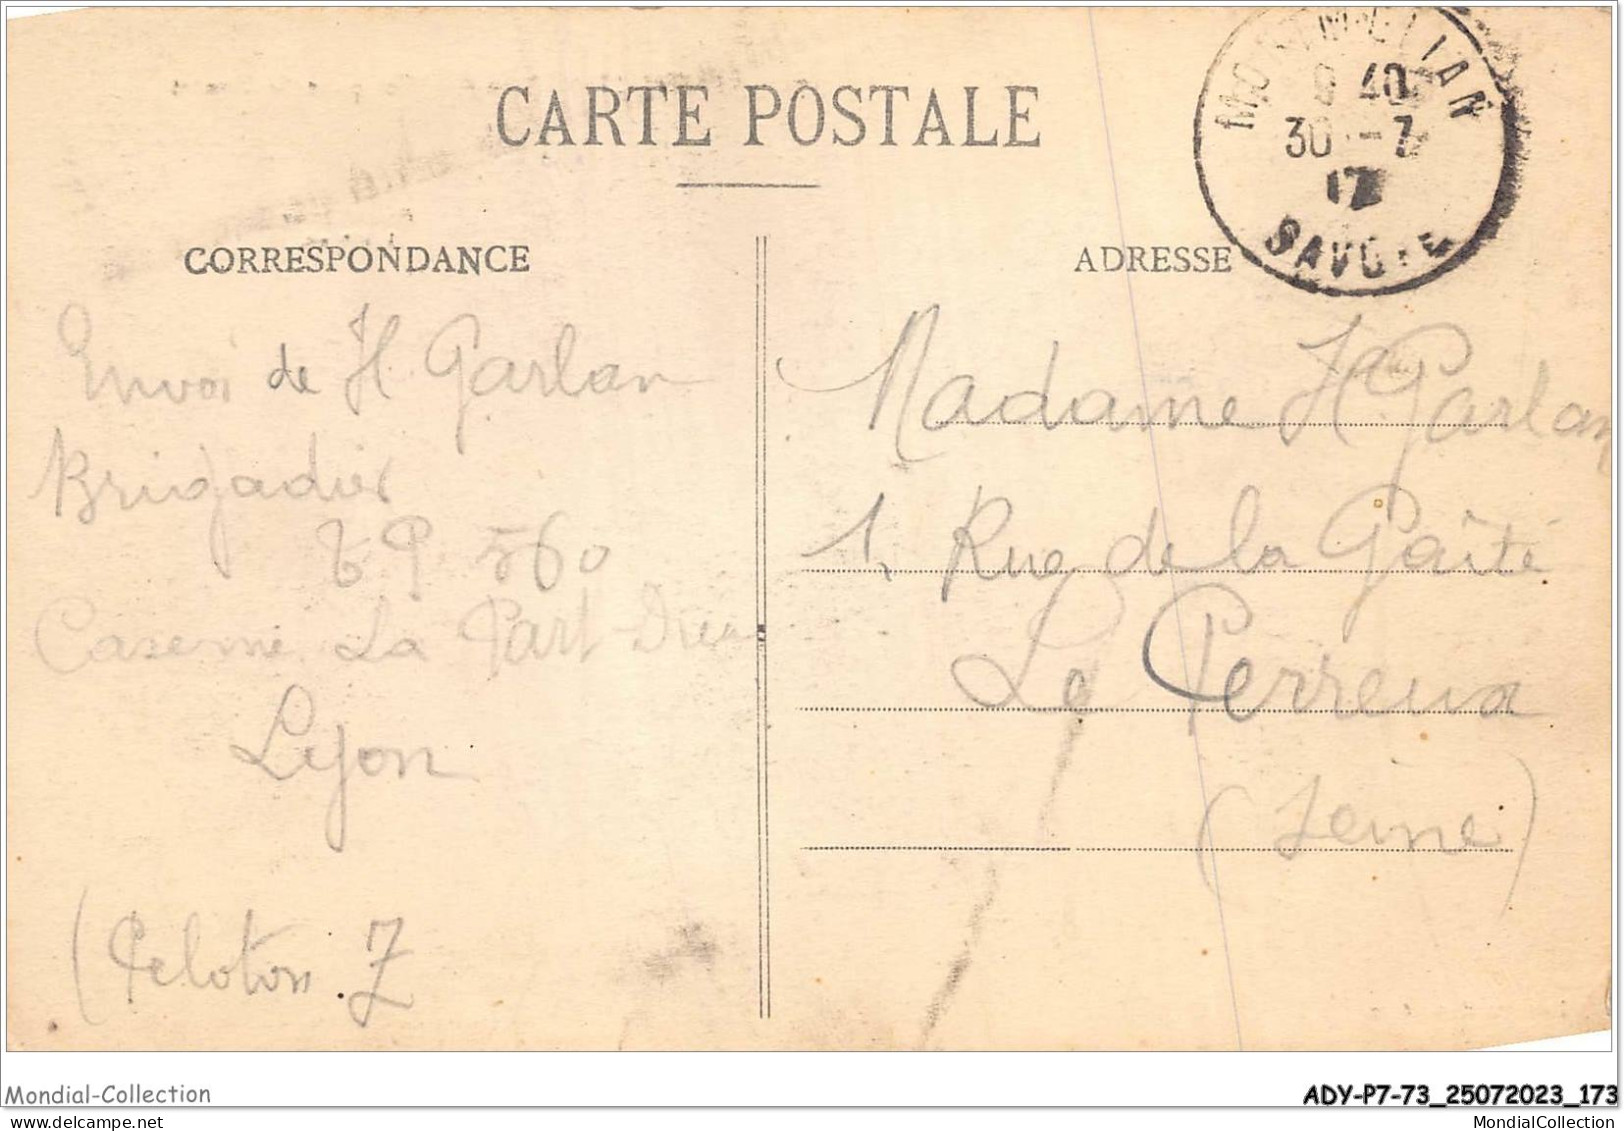 CARTE POSTALE
CORRESPONDANCE
ADRESSE
MONTMELIAN
40
30 - 7
17
SAVOIE
Envoi de H Garlan
Brigadier
T P 560
Caserne La Part-Dieu
Lyon
(Peloton Z
Madame H Garlan
1, Rue de la Gaîté
Le Perreux
(Seine)
Mondial-Collection
ADY-P7-73_25072023_173
www.delcampe.net
MondialCollection